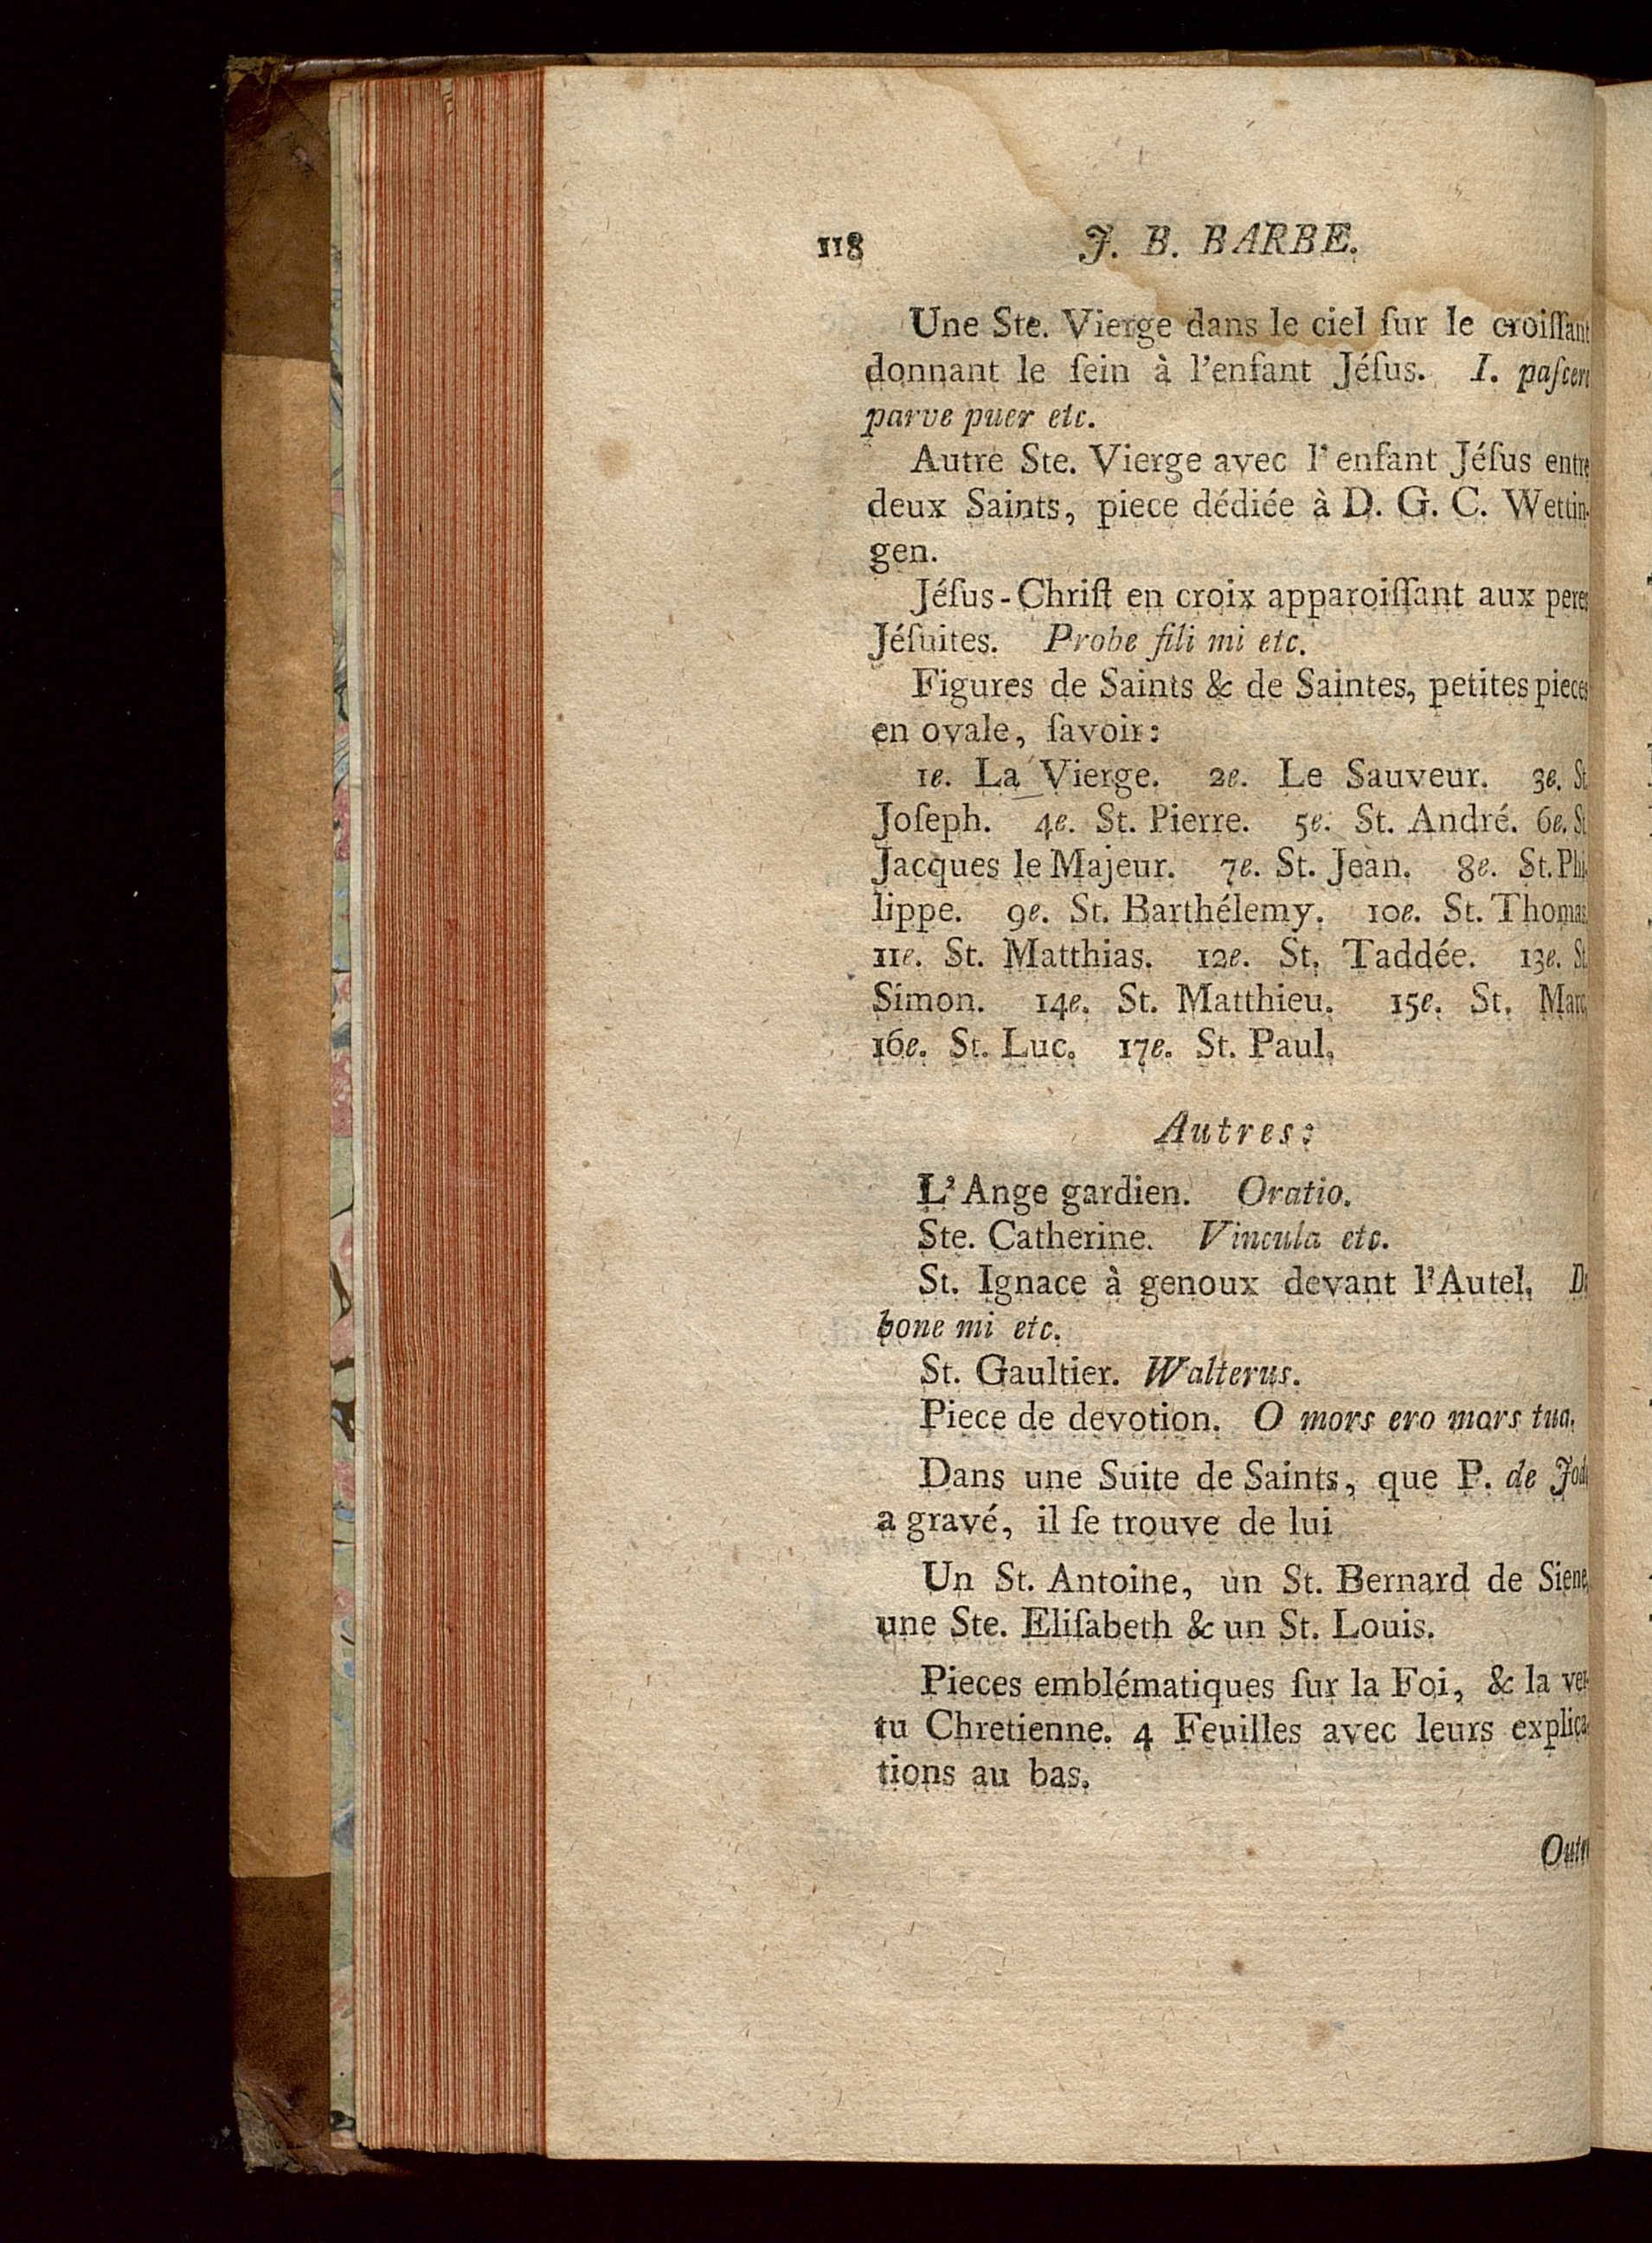 118 J. B. BARBE.
Une Ste. Vierge dans le ciel ſur le croiſſant
donnant le ſein à l'enfant Jéſus. I.
parve puer etc.
Autre Ste. Vierge avec l'enfant Jéſus entre
deux Saints, piece dédiée à D. G. C. Wettin-
gen.
Jéſus-Chriſt en croix apparoiſſant aux peres
Jéſuites. Probe fili mi etc.
Figures de Saints & de Saintes, petites pieces
en ovale, ſavoir:
1e. La Vierge. 2e. Le Sauveur. 3e. St.
Joſeph. 4e. St. Pierre. 5e. St. André. 6e. St.
Jacques le Majeur. 7e. St. Jean. 8e. St. Phi-
lippe. 9e. St. Barthélemy. 10e. St. Thomas.
11e. St. Matthias. 12e. St. Taddée. 13e. St.
Simon. 14e. St. Matthieu. 15e. St. Marc.
16e. St. Luc. 17e. St. Paul.
Autres:
L'Ange gardien. Oratio.
Ste. Catherine. Vincula etc.
St. Ignace à genoux devant l'Autel.
bone mi etc.
St. Gaultier. Walterus.
Piece de devotion. O mors ero mors tua.
Dans une Suite de Saints, que P. de Jode
a gravé, il ſe trouve de lui
Un St. Antoine, un St. Bernard de Siene,
une Ste. Eliſabeth & un St. Louis.
Pieces emblématiques ſur la Foi, & la ver-
tu Chretienne. 4 Feuilles avec leurs explica-
tions au bas.